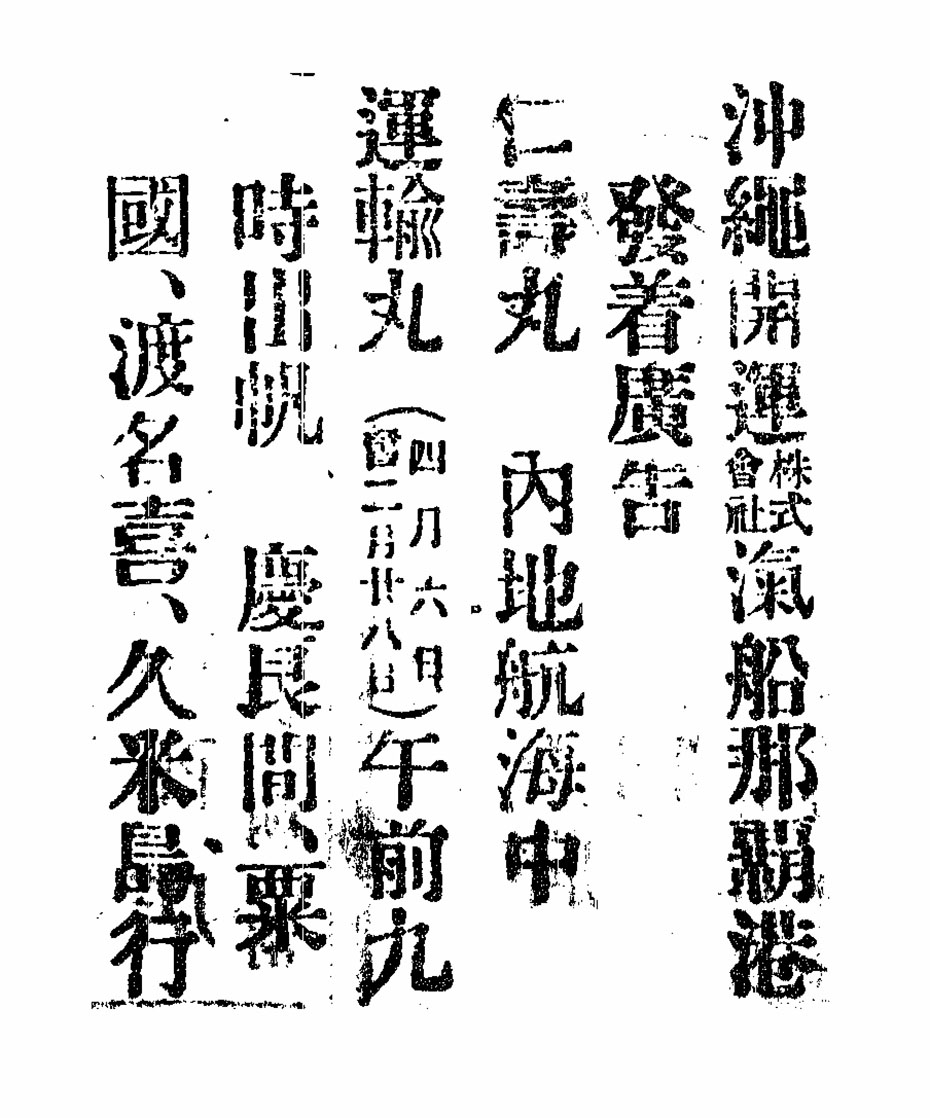 沖繩開運株式會社滊船那覇港
發着廣告
仁壽丸　內地航海中
運輸丸　（四月六日舊二月廿八日）午前九
時出帆　慶良間、粟
國、渡名喜、久米島行